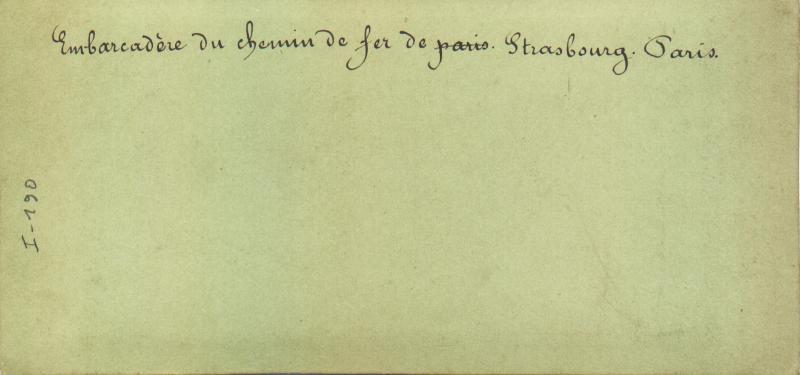 Embarcadère du chemin de fer de paris. Strasbourg. Paris.
I-190